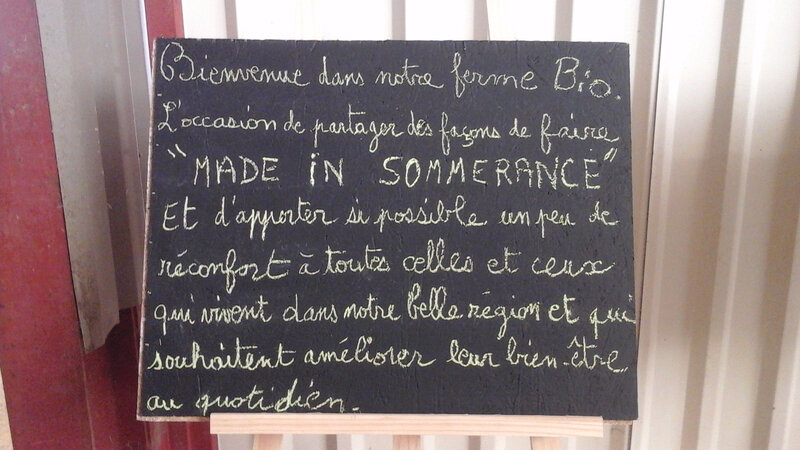 Bienvenue dans notre ferme Bio.
L'occasion de partager des façons de faire
"MADE iN SOMMERANCE"
Et d'apporter si possible un peu de
réconfort à toutes celles et ceux
qui vivent dans notre belle région et qui
souhaitent améliorer leur bien-être
au quotidien.